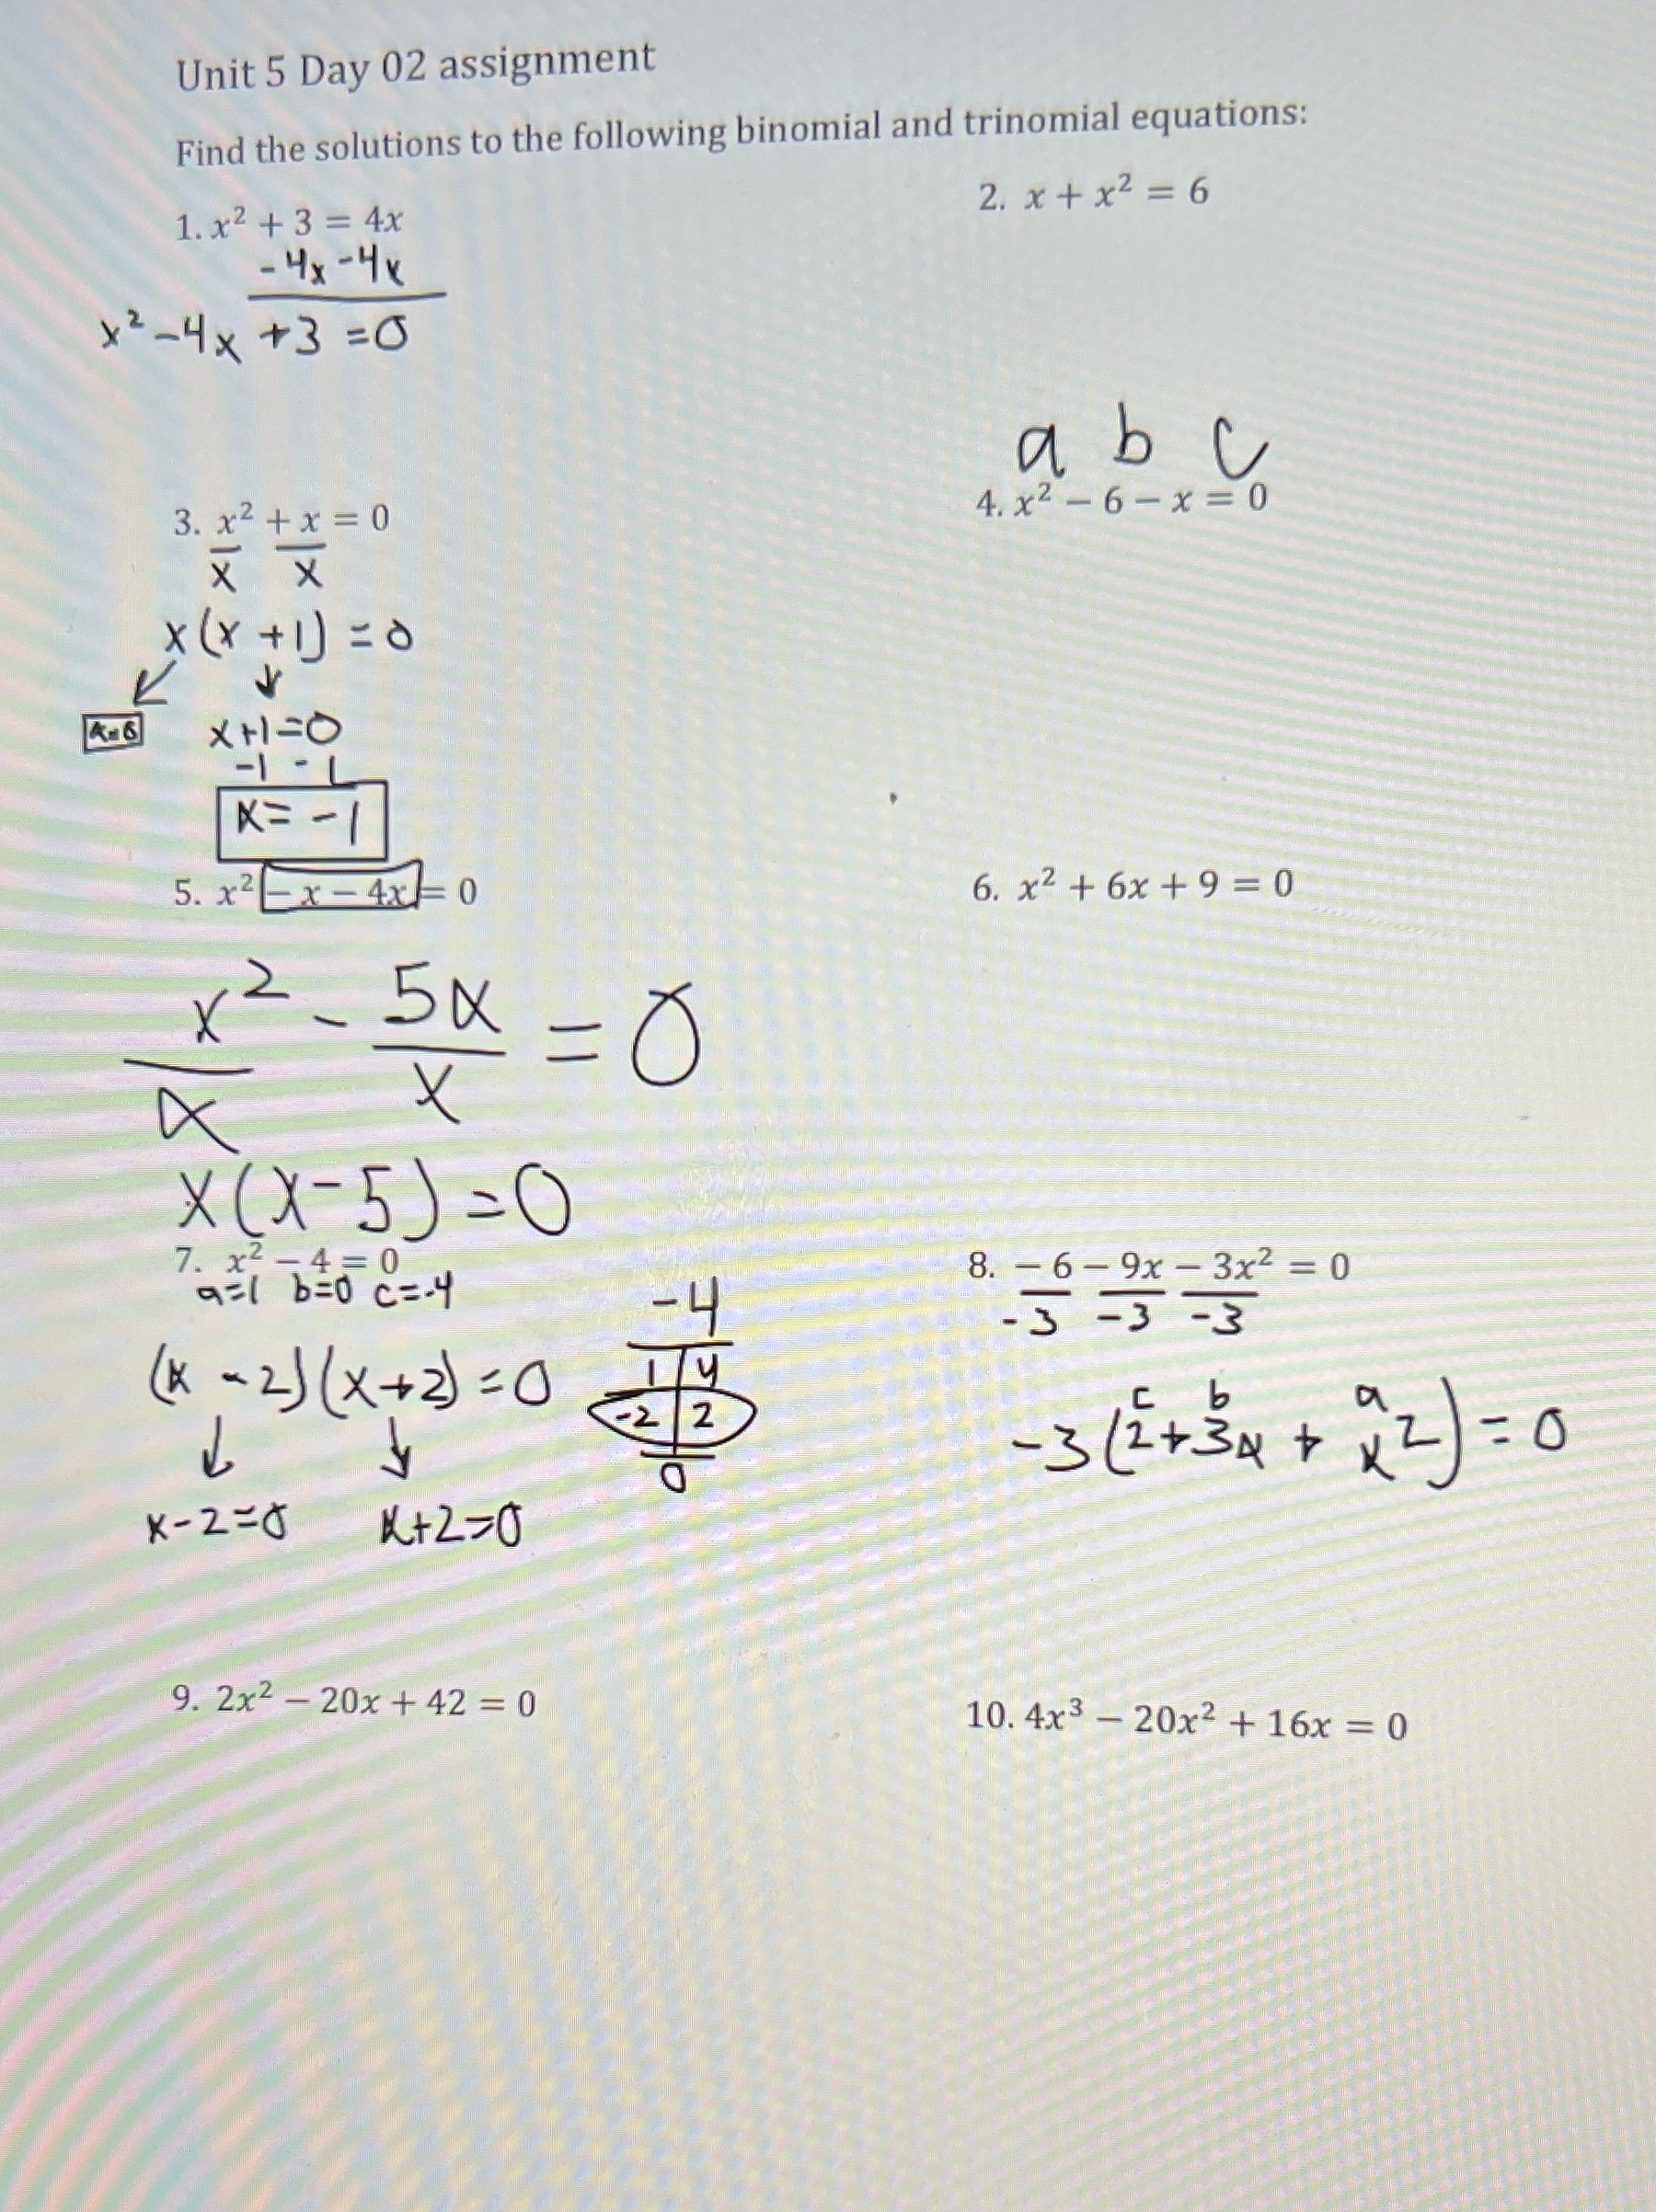 Unit 5 Day 02 assignment
Find the solutions to the following binomial and trinomial equations:
1. x² + 3 = 4x
-4x -4x
x² -4x +3 =0
2. x + x² = 6
3. x² + x = 0
x x
x(x +1) = 0
x=0
x+1=0
-1 -1
x= -1
a b c
4. x² − 6 − x = 0
5. x² − x − 4x = 0
x² - 5x = 0
x x
x(x-5)=0
6. x² + 6x + 9 = 0
7. x² − 4 = 0
a=1 b=0 c=-4
(x -2)(x+2) =0
x-2=0 x+2=0
-4
1 4
-2 2
0
8. − 6 − 9x − 3x² = 0
-3 -3 -3
c b a
-3(2+3x + x²)=0
9. 2x² − 20x + 42 = 0
10. 4x³ − 20x² + 16x = 0